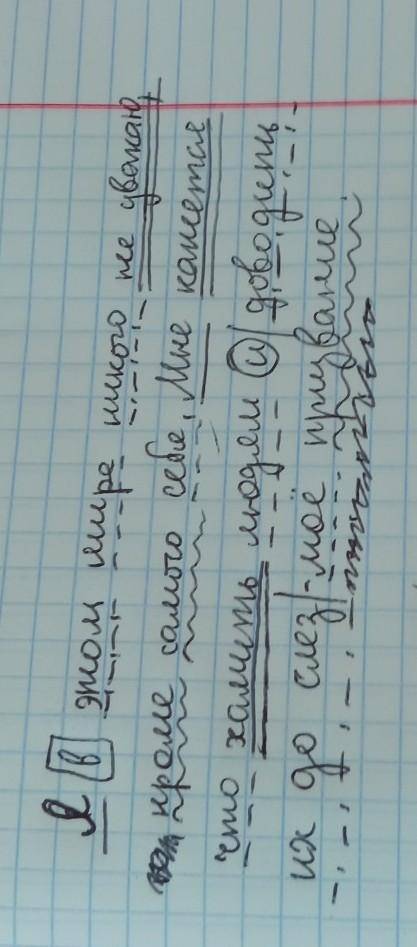 Я в этом мире никого не уважаю
кроме самого себе, Мне кажется
что хамить людям и доводить
их до слез - моё призвание.